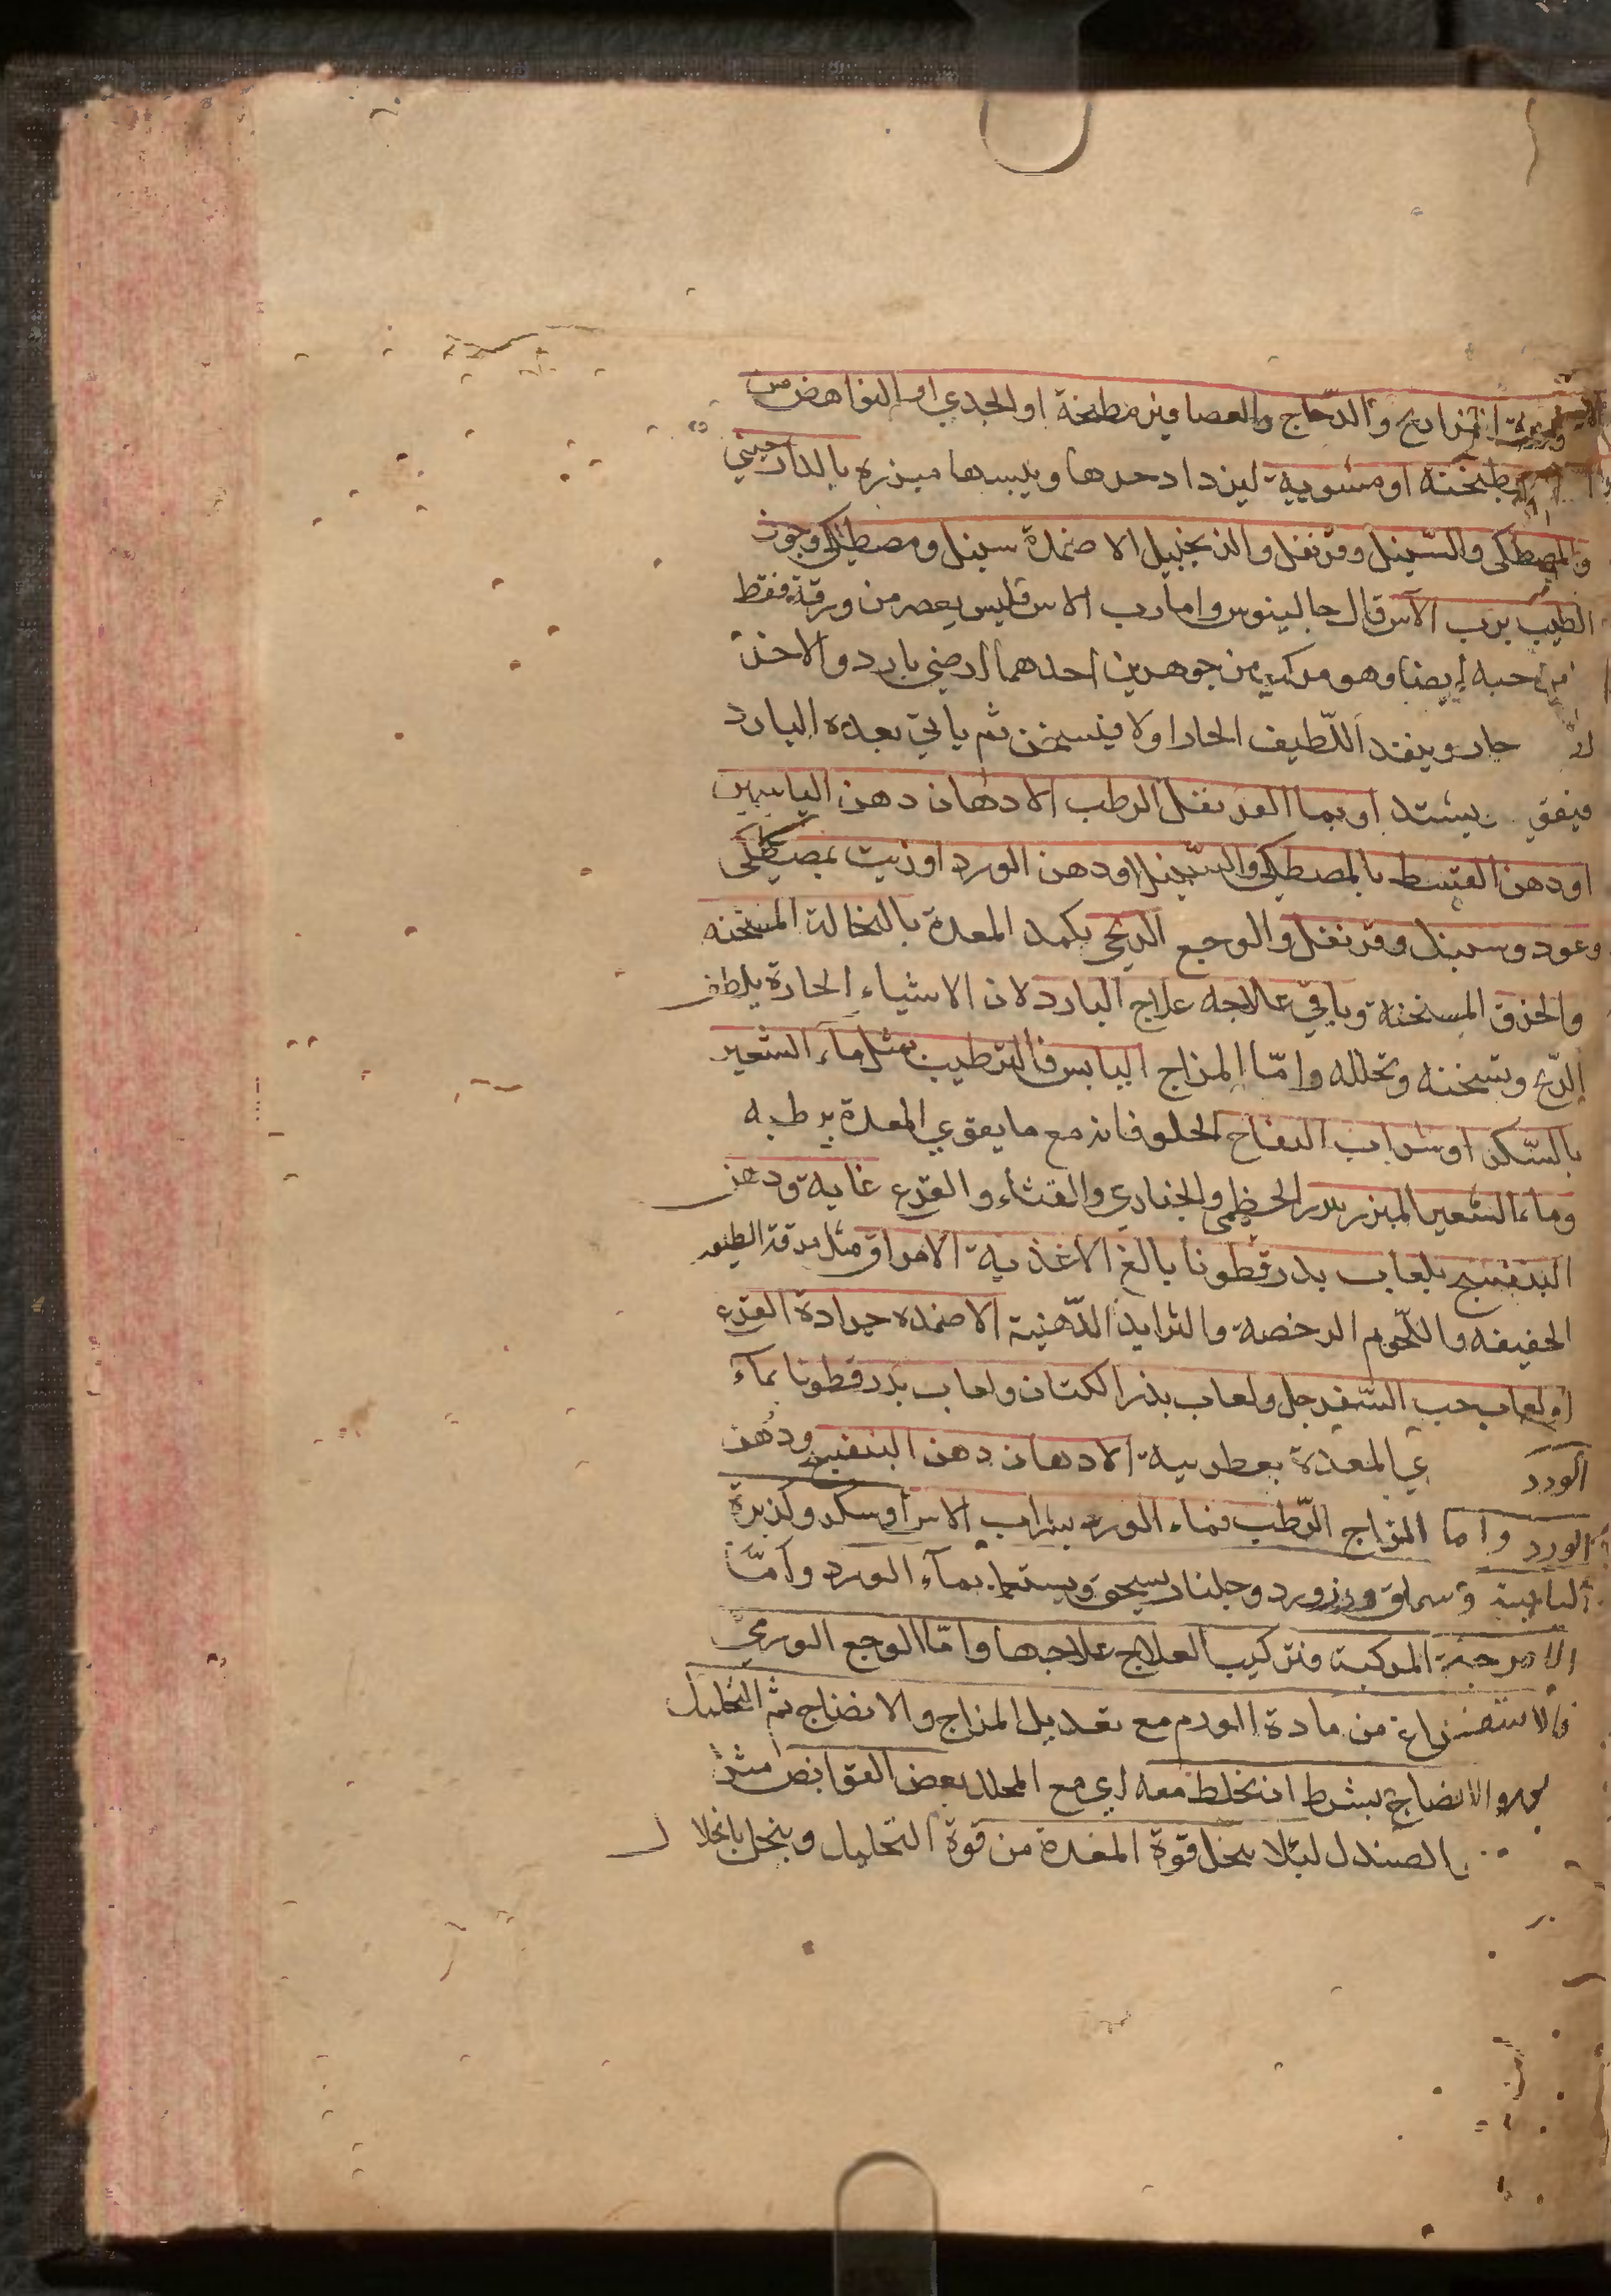 الفراريج والدّجاج والعصافير مطبخة او الجدي او النواهض من
مطبخنه او مشوية ليزداد حرها ويبسها مبزره بالدارصيني
والمصطكى والسّنبل وقرنفل والزنجبيل الاضمدة سنبل ومصطكى وجوز
الطيب برب الآس قال جالينوس واما رب الاس فليس يعصر من ورقة فقط
من حبه أيضا وهو مركب من جوهرين احدهما ارضي بارد والاخر
حار وينفذ اللّطيف الحار اولا فيسخن ثم ياتي بعده البارد
فيقي يشتد او بما القرنفل الرطب الادهان دهن الياسمين
او دهن القسط بالمصطكى والسّنبل او دهن الورد او زيت بمصطكى
وعود وسنبل وقرنفل والوجع الريحي يكمد المعدة بالنخالة المسخنه
والخرق المسخنة وباقي علاجه علاج البارد لان الاشياء الحارة يلطف
الرّيح وتسخنه وتحلله وامّا المزاج اليابس فالترطيب بمثل ماء الشعير
بالسّكر او شراب التفاح الحلو فانه مع ما يقوي المعدة يرطبه
وماء الشعير المبزر ببزر الخطمي والخبازي والقثاء والقرع غاية ودهن
البنفسج بلعاب بذر قطونا بالغ الاغذية الامراق مثل مرقة الطيور
الخفيفه واللّحوم الرخصة والثرايد الدّهنية الاضمده جرادة القرع
او لعاب حب السّفرجل ولعاب بذر الكتان ولعاب بذر قطونا بمآء
الورد ي المعدة بعطرية الادهان دهن البنفسج ودهن
الورد واما المزاج الرّطب فماء الورد بشراب الاس او سكر وكزبرة
اليابسة وسماق وزرورد وجلنار يسحق ويستعمل بمآء الورد وامّا
الامزجة المركبة فتركيب العلاج علاجها وامّا الوجع الورمي
فالاستفراغ من مادة الورم مع تعديل المزاج والانضاج ثم التحليل
والانضاج بشرط ان يخلط معه اي مع المحلل بعض القوابض مثل
الصندل لئلا ينحل قوة المعدة من قوة التحليل وينحل بانحلال